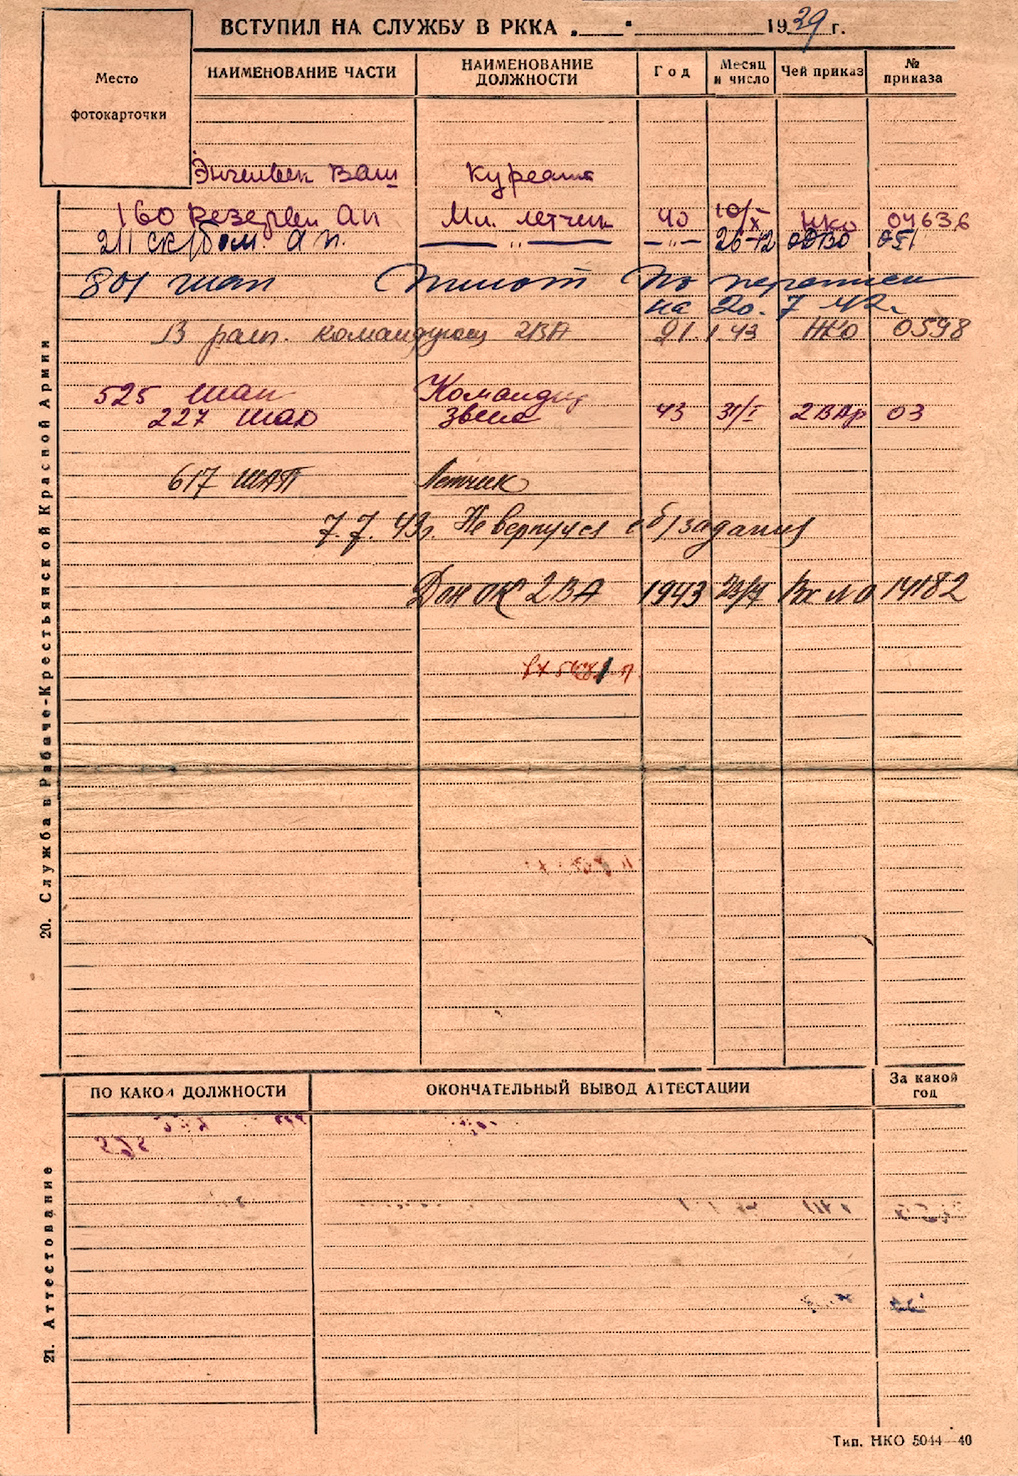 ВСТУПИЛ НА СЛУЖБУ В РККА „___" ______ 1939 г.
Место фотокарточки
НАИМЕНОВАНИЕ ЧАСТИ НАИМЕНОВАНИЕ ДОЛЖНОСТИ Год Месяц и число Чей приказ № приказа
Энгельск ВАШ Курсант
160 Резервн ап Мл. летчик 40 10/X НКО 04636
211 ск/бом. ап. —„— —„— 26-12 ОДВО 051
801 шап Пилот По переписи
на 20. 7 42г.
В расп. командующ 2ВА 21.1 43 НКО 0598
525 шап Командир
227 шад звена 43 31/I 2ВАр 03
617 ШАП Летчик
7.7.43г. Не вернулся с б/задания
Дон ОК 2ВА 1943 Вх 14182
20. Служба в Рабоче-Крестьянской Красной Армии
ПО КАКОЙ ДОЛЖНОСТИ ОКОНЧАТЕЛЬНЫЙ ВЫВОД АТТЕСТАЦИИ За какой год
21. Аттестование
Тип. НКО 5044—40